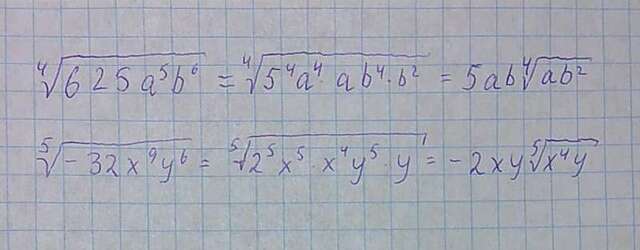 ⁴√(625a⁵b⁶) = ⁴√(5⁴a⁴·ab⁴·b²) = 5ab⁴√(ab²)
⁵√(-32x⁹y⁶) = ⁵√(2⁵x⁵·x⁴y⁵·y') = -2xy⁵√(x⁴y)